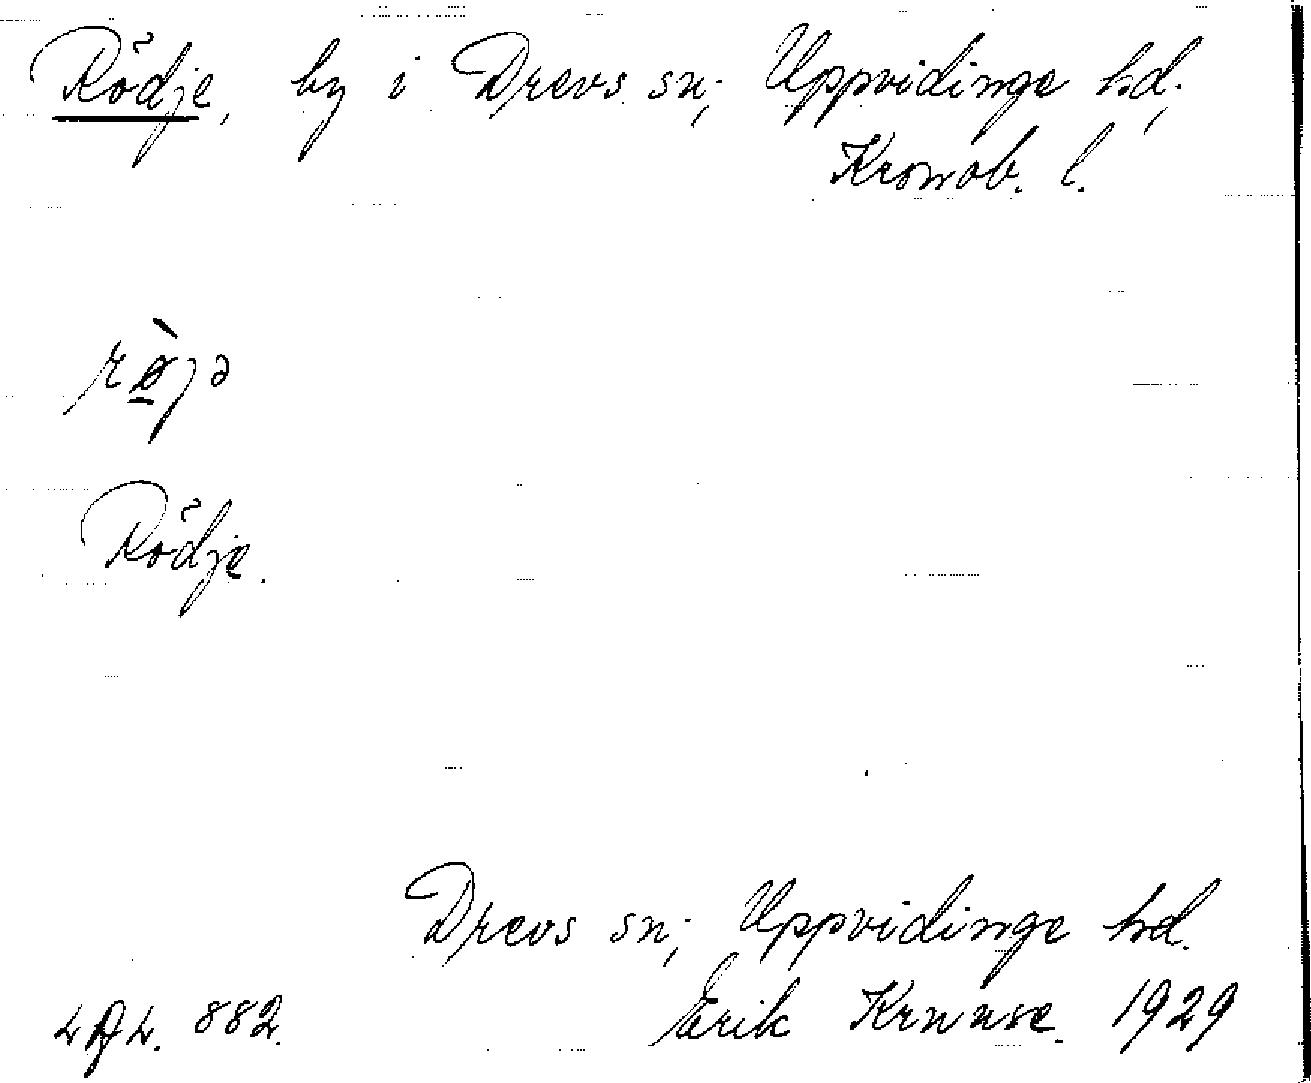 Rödje, by i Drevs sn; Uppvidinge hd;
Kronob. l.
rø̀jə
Rödje.
Drevs sn; Uppvidinge hd.
882. Erik Krause. 1929